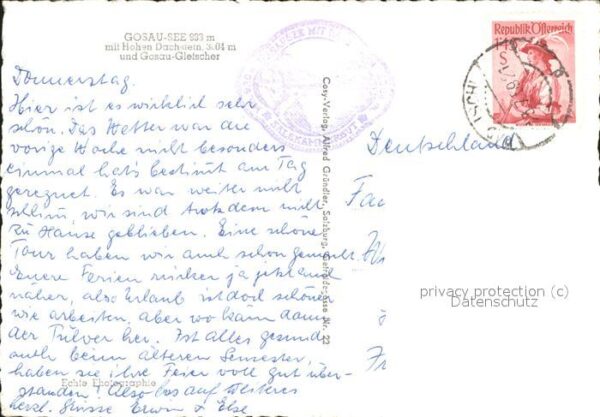 GOSAU-SEE 933 m
mit Hohen Dachstein, 3004 m
und Gosau-Gletscher
Donnerstag.
Hier ist es wirklich sehr
schön. Das Wetter war die
vorige Woche nicht besonders
einmal hat's bestimmt am Tag
geregnet. Es war weiter nicht
schlim, wir sind trotzdem nicht
zu Hause geblieben. Eine schöne
Tour haben wir auch schon gemacht.
Euere Ferien rücken ja jetzt auch
näher, also Urlaub ist doch schöner
wie arbeiten, aber wo kam dann
der Pulver her. Ist alles gesund
auch beim älteren Semester,
haben sie ihre Feier voll gut über-
standen! Also bis auf Weiteres
herzl. Grüsse Erwin & Else
Echte Photographie
Cosy-Verlag, Alfred Gründler, Salzburg, Getreidegasse Nr. 22
Republik Österreich
ISCHL
Deutschland
Fa
Fr
privacy protection (c)
Datenschutz